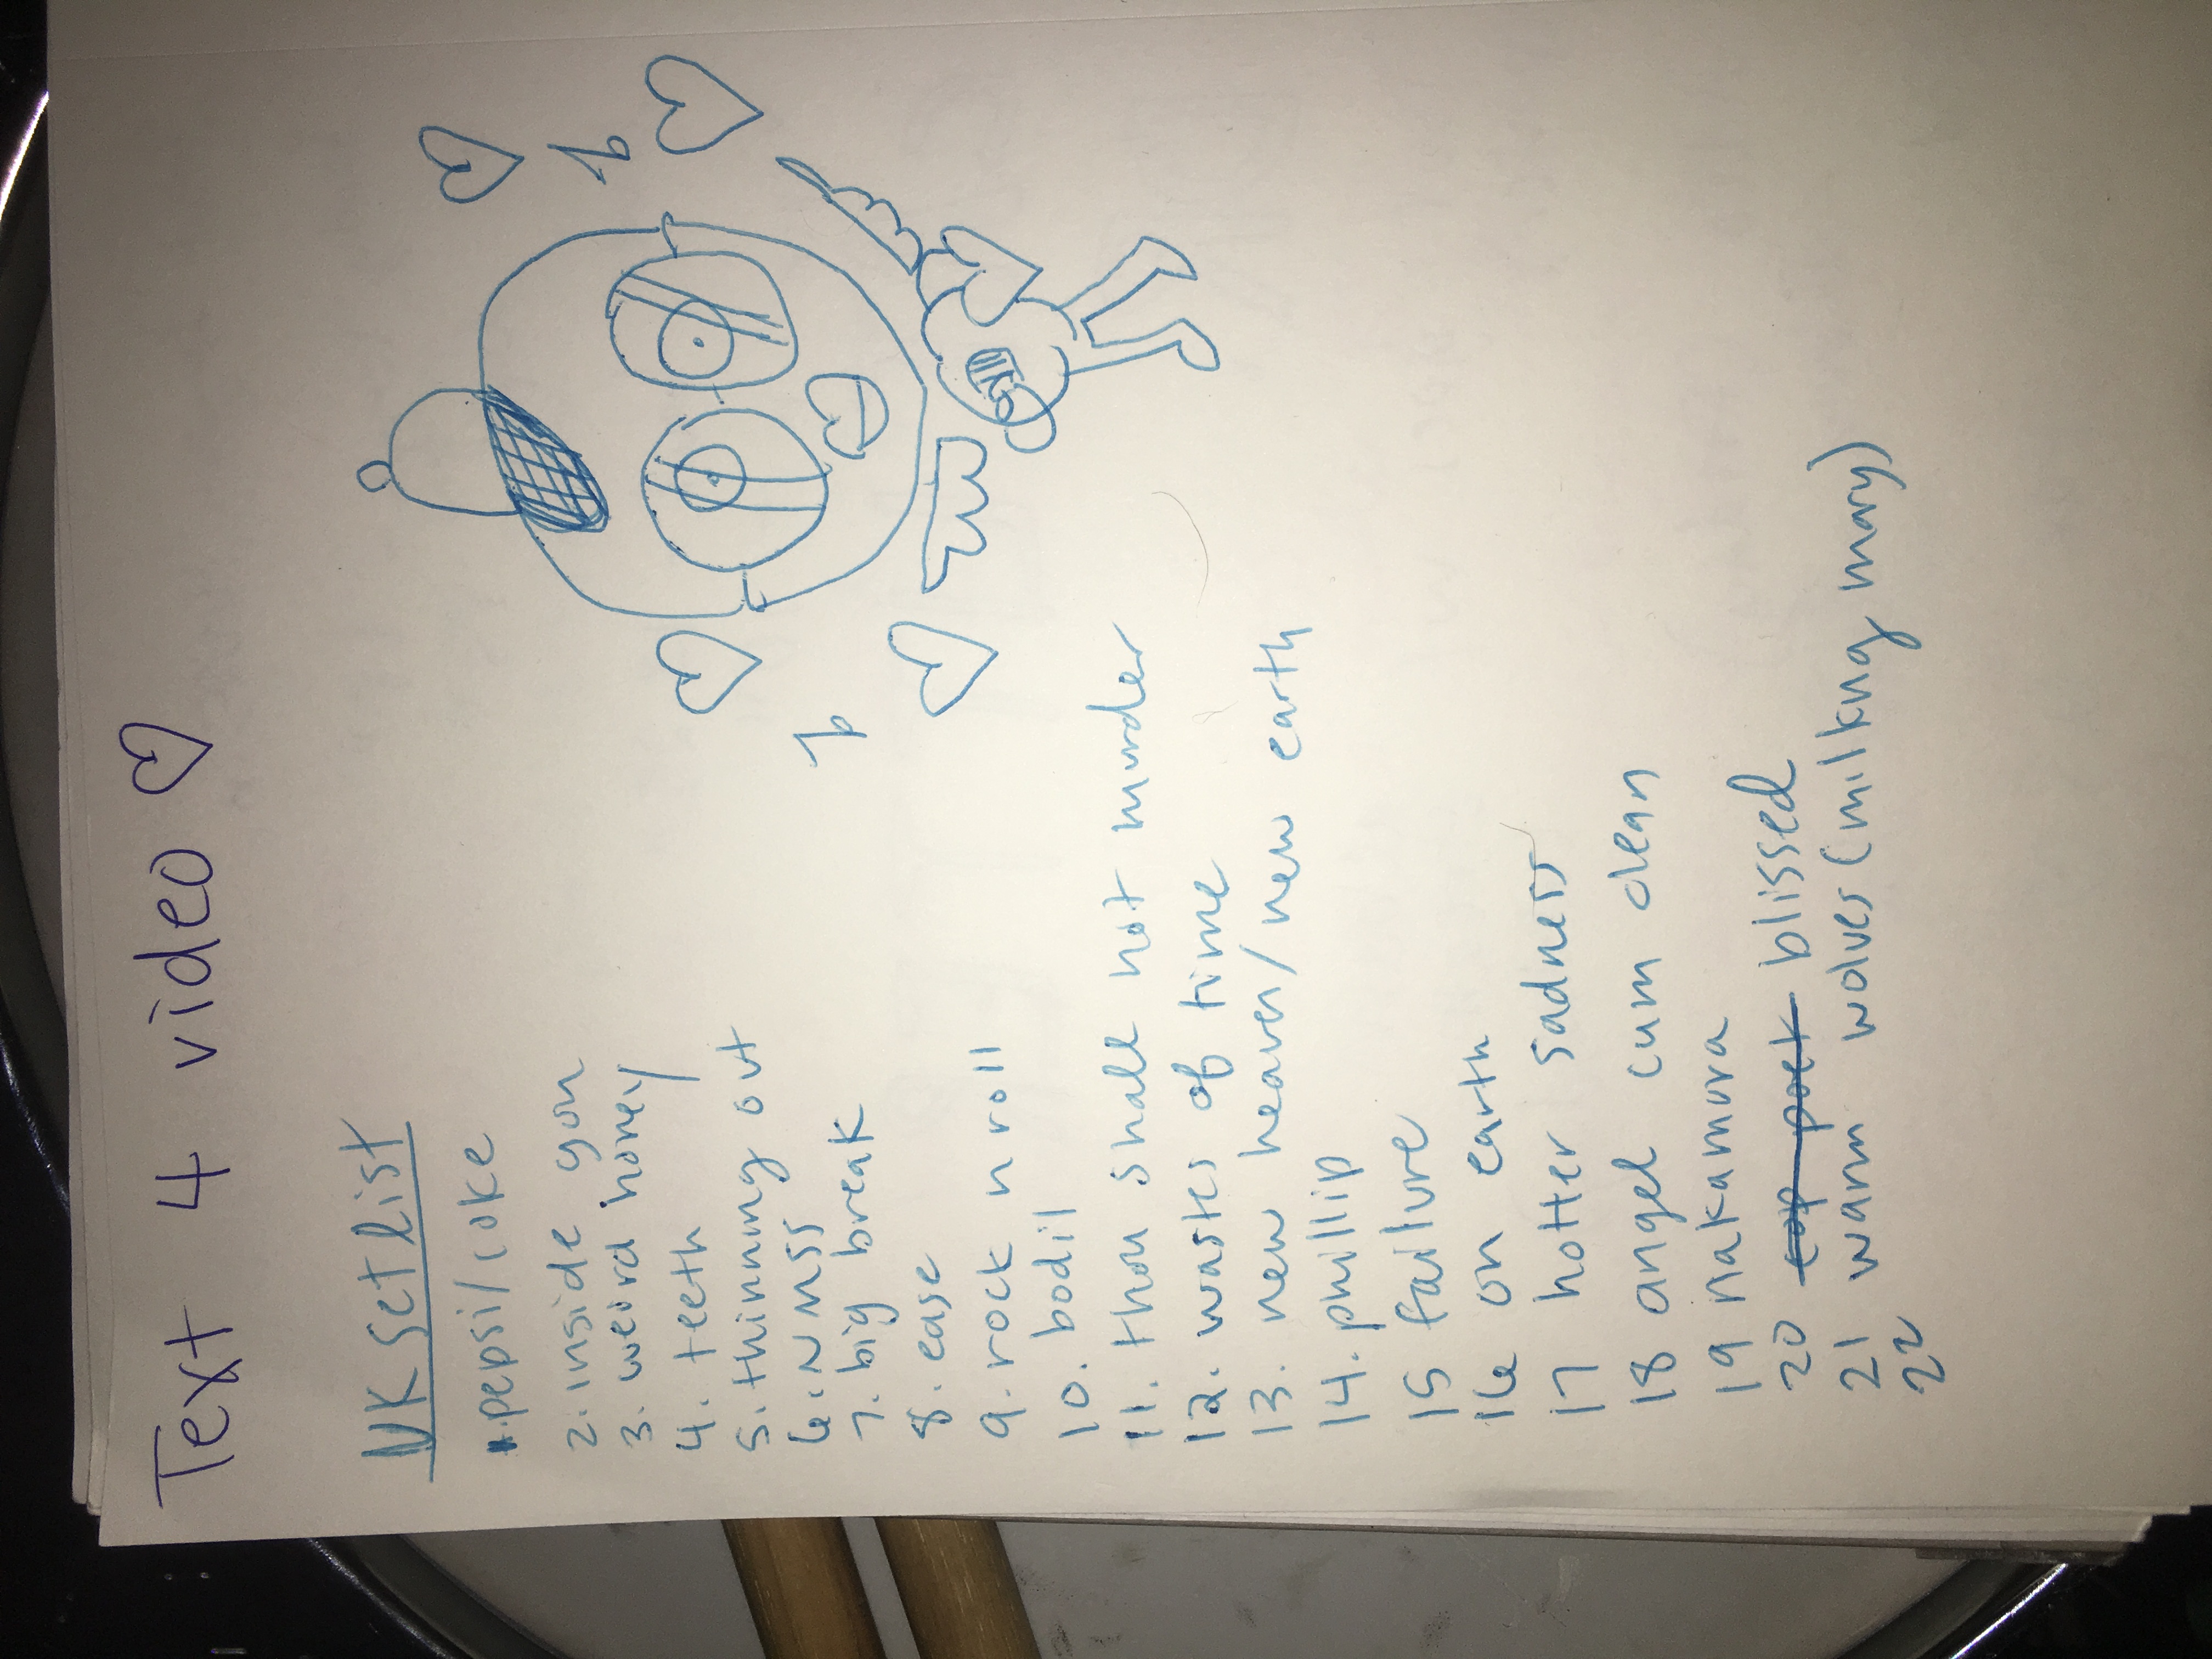 Text 4 video ♡
NK setlist
1. pepsi/coke
2. inside you
3. weird honey
4. teeth
5. thinning out
6. NMSS
7. big break
8. ease
9. rock n roll
10. bodil
11. thou shall not murder
12. wastes of time
13. new heaven/new earth
14. phillip
15 failure
16 on earth
17 hotter sadness
18 angel cum clean
19 nakamura
20 cop poet blissed
21 warm wolves (milkng mary)
22